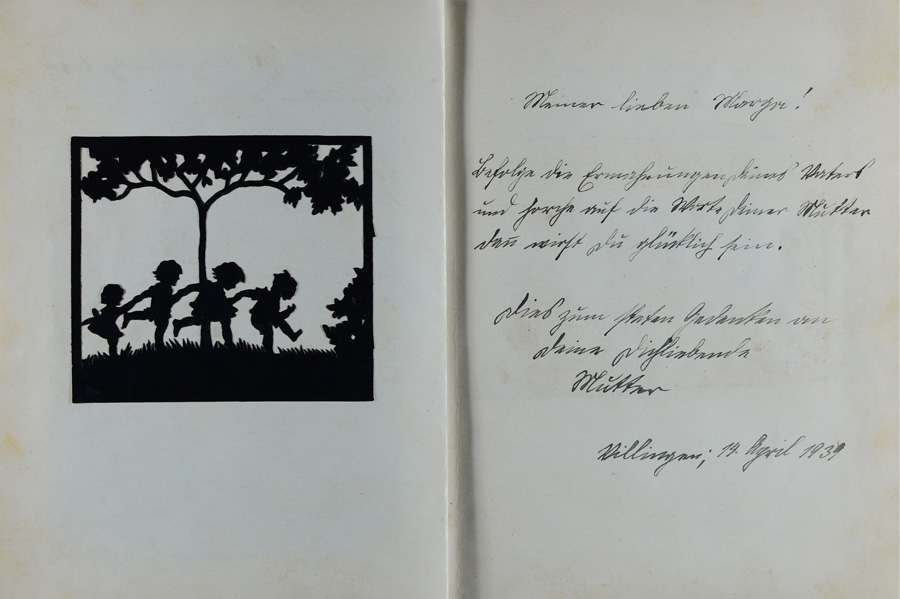 Meiner lieben Marga!
Befolge die Ermahnungen deines Vaters
und horche auf die Worte deiner Mutter
dan̅ wirst du glücklich sein.
Dies zum steten Gedenken an
deine dichliebende
Mutter
Villingen, 14. April 1939